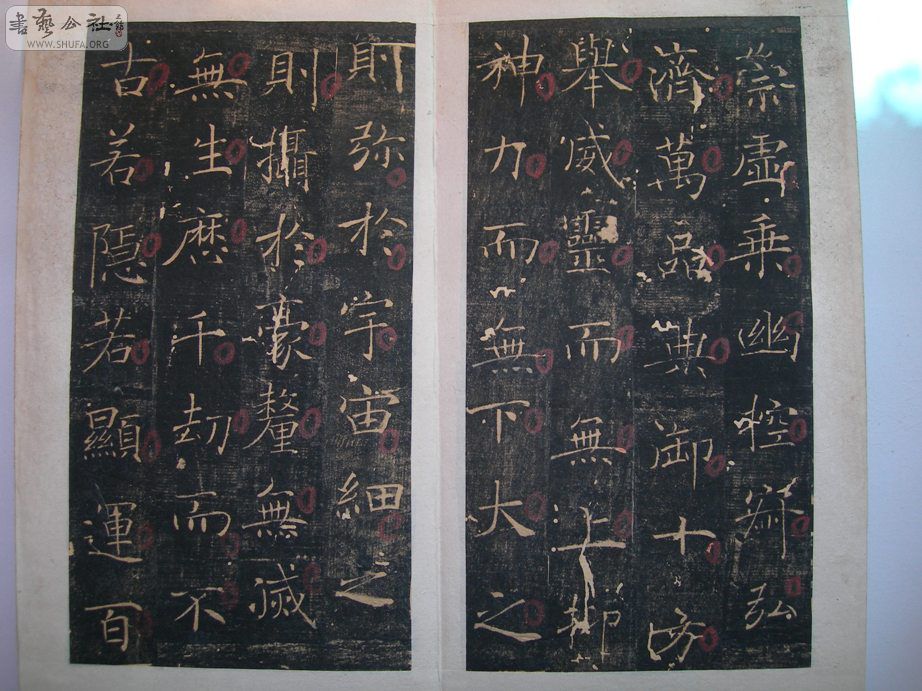 書藝公社
WWW.SHUFA.ORG
崇虛乗幽控寂弘
濟萬品典御十方
舉威靈而無上抑
神力而無下大之
則弥於宇宙細之
則攝於豪釐無滅
無生歷千劫而不
古若隱若顯運百